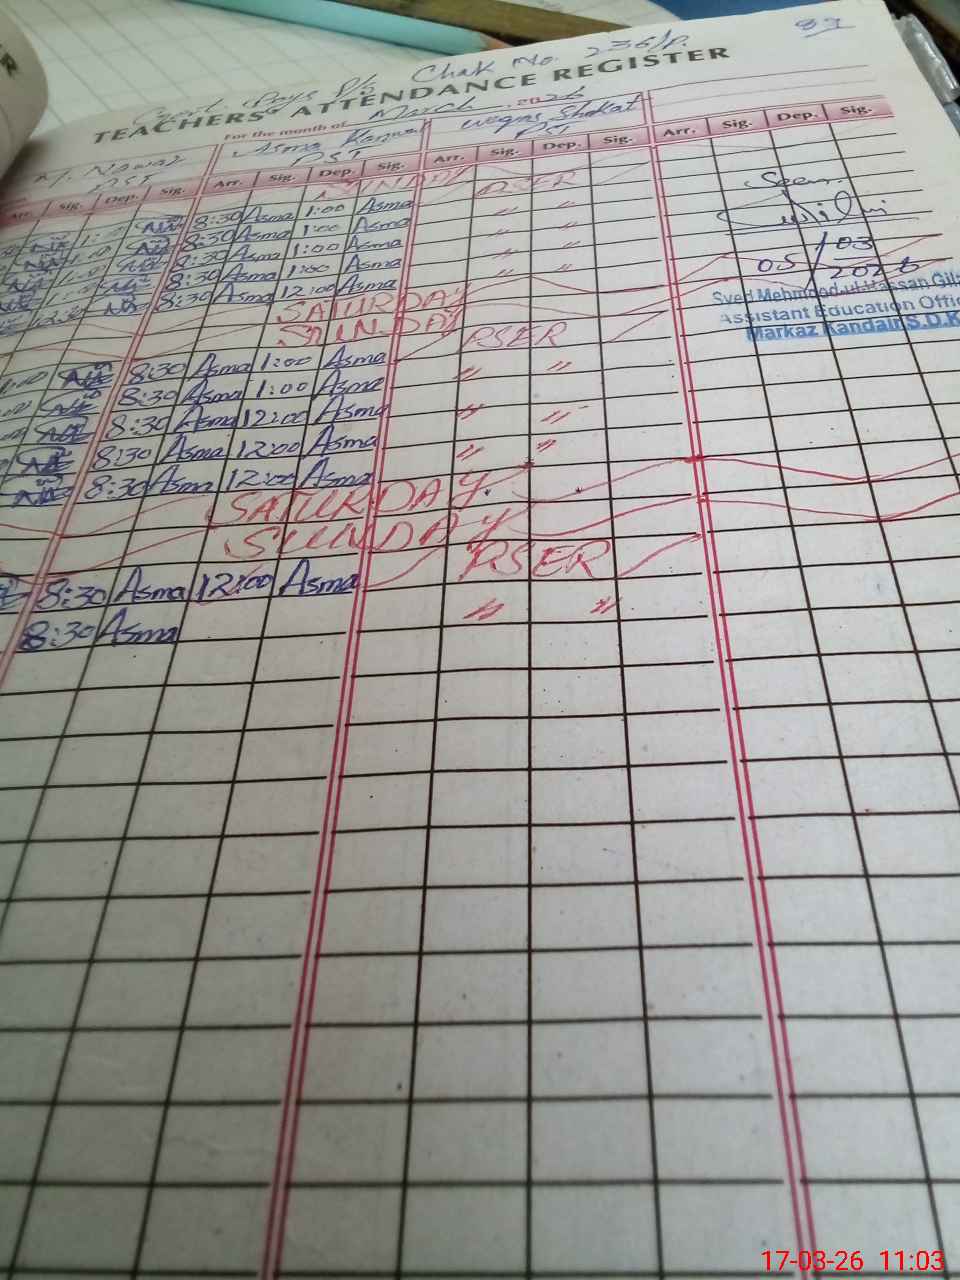 83
Govt. Boys P/S Chak No. 236/P.
TEACHERS' ATTENDANCE REGISTER
For the month of March 2026
M. Nawaz Asma Kanwal Shokat
PST PST PST
Arr. Sig. Dep. Sig. Arr. Sig. Dep. Sig. Arr. Sig. Dep. Sig. Arr. Sig. Dep. Sig.
SUNDAY PSER
8:30 Asma 1:00 Asma " "
8:30 Asma 1:00 Asma " "
8:30 Asma 1:00 Asma " "
8:30 Asma 1:00 Asma " "
8:30 Asma 12:00 Asma
SATURDAY
SUNDAY PSER
8:30 Asma 1:00 Asma " "
8:30 Asma 1:00 Asma
8:30 Asma 12:00 Asma " "
8:30 Asma 12:00 Asma " "
8:30 Asma 12:00 Asma
SATURDAY
SUNDAY
PSER
8:30 Asma 12:00 Asma " "
8:30 Asma
Seen
05/03/2026
Syed Mehmood ul Hassan
Assistant Education Offic
Markaz Kandair S.D.K
17-03-26 11:03